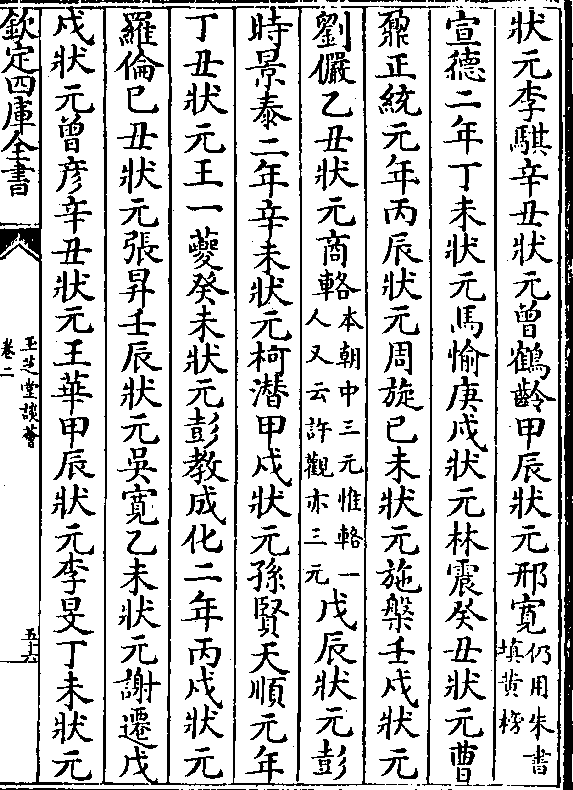 狀元李騏辛丑狀元曾鶴齡甲辰狀元邢寛仍用朱書填黄榜
宣德二年丁未狀元馬愉庚戍狀元林震癸丑狀元曹
鼐正統元年丙辰狀元周旋已未狀元施槃壬戍狀元
劉儼乙丑狀元商輅本朝中三元惟輅一人又云許觀亦三元戊辰狀元彭
時景泰二年辛未狀元柯潛甲戍狀元孫賢天順元年
丁丑狀元王一夔癸未狀元彭教成化二年丙戍狀元
羅倫巳丑狀元張昇壬辰狀元吳寛乙未狀元謝遷戊
戍狀元曾彦辛丑狀元王華甲辰狀元李旻丁未狀元
欽定四庫全書
玉芝堂談薈
卷二
五十六